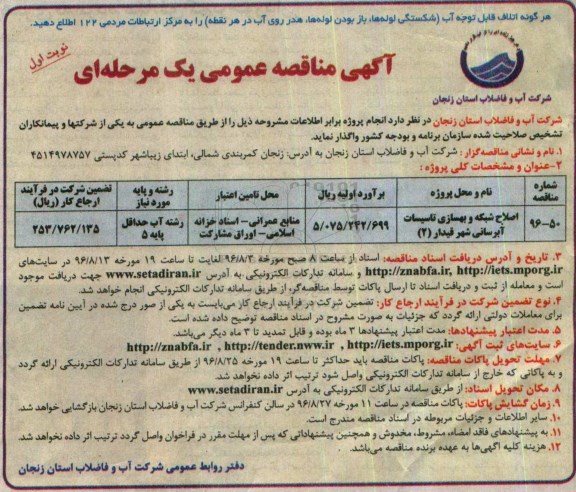 هر گونه اتلاف قابل توجه آب (شکستگی لوله‌ها، باز بودن لوله‌ها، هدر روی آب در هر نقطه) را به مرکز ارتباطات مردمی ۱۲۲ اطلاع دهید.
نوبت اول
آگهی مناقصه عمومی یک مرحله‌ای
شرکت آب و فاضلاب استان زنجان
شرکت آب و فاضلاب استان زنجان در نظر دارد انجام پروژه برابر اطلاعات مشروحه ذیل را از طریق مناقصه عمومی به یکی از شرکتها و پیمانکاران
تشخیص صلاحیت شده سازمان برنامه و بودجه کشور واگذار نماید.
۱. نام و نشانی مناقصه‌گزار : شرکت آب و فاضلاب استان زنجان به آدرس: زنجان کمربندی شمالی، ابتدای زیباشهر کدپستی ۴۵۱۴۹۷۸۷۵۷
۲-عنوان و مشخصات کلی پروژه :
شماره مناقصه
نام و محل پروژه
برآورد اولیه ریال
محل تامین اعتبار
رشته و پایه مورد نیاز
تضمین شرکت در فرآیند ارجاع کار (ریال)
۹۶-۵۰
اصلاح شبکه و بهسازی تاسیسات آبرسانی شهر قیدار (۲)
۵/۰۷۵/۲۴۲/۶۹۹
منابع عمرانی- اسناد خزانه اسلامی- اوراق مشارکت
رشته آب حداقل پایه ۵
۲۵۳/۷۶۲/۱۳۵
۳. تاریخ و آدرس دریافت اسناد مناقصه: اسناد از ساعت ۸ صبح مورخه ۹۶/۸/۳ لغایت تا ساعت ۱۹ مورخه ۹۶/۸/۱۳ در سایت‌های
http://znabfa.ir, http://iets.mporg.ir و سامانه تدارکات الکترونیکی به آدرس www.setadiran.ir جهت دریافت موجود
است و معامله از ثبت و دریافت اسناد تا ارسال پاکات توسط مناقصه‌گر، از طریق سامانه تدارکات الکترونیکی انجام خواهد شد.
۴. نوع تضمین شرکت در فرآیند ارجاع کار: تضمین شرکت در فرآیند ارجاع کار می‌بایست به یکی از صور درج شده در آیین نامه تضمین
برای معاملات دولتی ارائه گردد که جزئیات به صورت مشروح در اسناد مناقصه توضیح داده شده است.
۵. مدت اعتبار پیشنهادها: مدت اعتبار پیشنهادها ۳ ماه بوده و قابل تمدید تا ۳ ماه دیگر می‌باشد.
۶. سایت‌های ثبت آگهی: http://znabfa.ir , http://tender.nww.ir , http://iets.mporg.ir
۷. مهلت تحویل پاکات مناقصه: پاکات مناقصه باید حداکثر تا ساعت ۱۹ مورخه ۹۶/۸/۲۵ از طریق سامانه تدارکات الکترونیکی ارائه گردد
و به پاکاتی که خارج از سامانه تدارکات الکترونیکی واصل شود ترتیب اثر داده نخواهد شد.
۸. مکان تحویل اسناد: از طریق سامانه تدارکات الکترونیکی به آدرس www.setadiran.ir
۹. زمان گشایش پاکات: پاکات مناقصه در ساعت ۱۱ مورخه ۹۶/۸/۲۷ در سالن کنفرانس شرکت آب و فاضلاب استان زنجان بازگشایی خواهد شد.
۱۰. سایر اطلاعات و جزئیات مربوطه در اسناد مناقصه مندرج است.
۱۱. به پیشنهادهای فاقد امضاء، مشروط، مخدوش و همچنین پیشنهاداتی که پس از مهلت مقرر در فراخوان واصل گردد ترتیب اثر داده نخواهد شد.
۱۲. هزینه کلیه آگهی‌ها به عهده برنده مناقصه می‌باشد.
دفتر روابط عمومی شرکت آب و فاضلاب استان زنجان